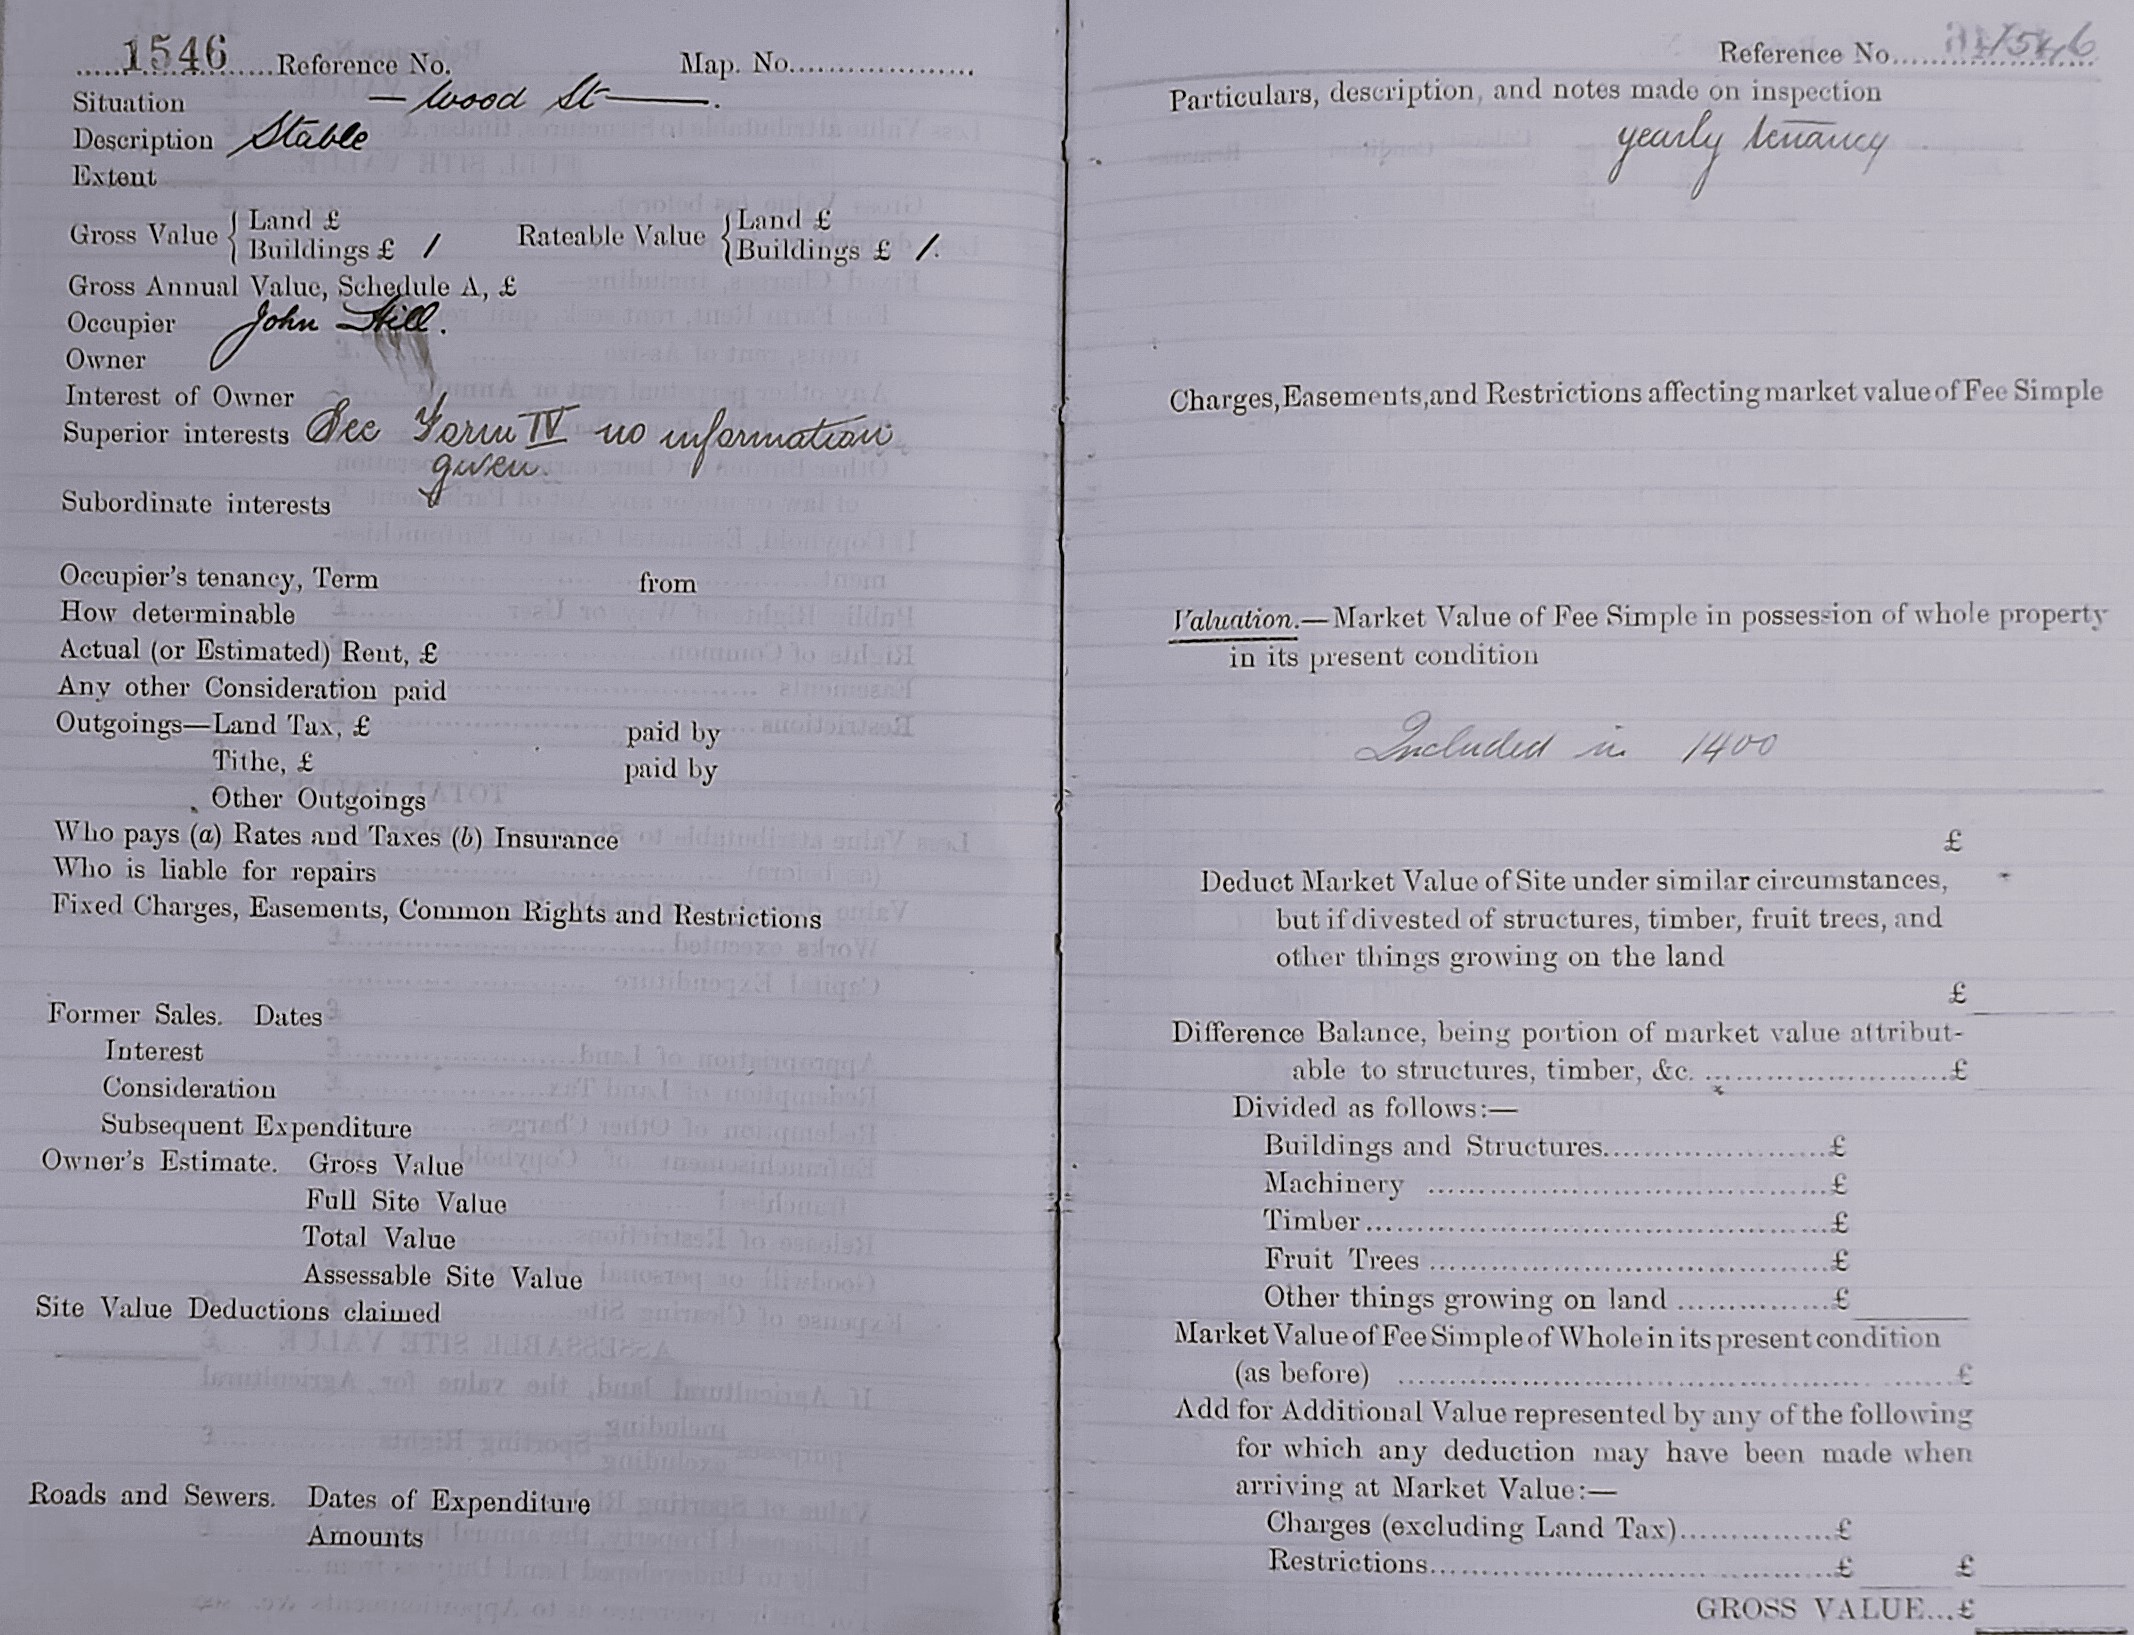 1546 Reference No. Map. No.
Situation — Wood St —.
Description Stable
Extent
Gross Value { Land £ Rateable Value { Land £
Buildings £ / Buildings £ /.
Gross Annual Value, Schedule A, £
Occupier John Hill.
Owner
Interest of Owner
Superior interests See Form IV no information
given.
Subordinate interests
Occupier's tenancy, Term from
How determinable
Actual (or Estimated) Rent, £
Any other Consideration paid
Outgoings—Land Tax, £ paid by
Tithe, £ paid by
Other Outgoings
Who pays (a) Rates and Taxes (b) Insurance
Who is liable for repairs
Fixed Charges, Easements, Common Rights and Restrictions
Former Sales. Dates
Interest
Consideration
Subsequent Expenditure
Owner's Estimate. Gross Value
Full Site Value
Total Value
Assessable Site Value
Site Value Deductions claimed
Roads and Sewers. Dates of Expenditure
Amounts
Reference No. 1546
Particulars, description, and notes made on inspection
yearly tenancy
Charges, Easements, and Restrictions affecting market value of Fee Simple
Valuation.—Market Value of Fee Simple in possession of whole property
in its present condition
Included in 1400
£
Deduct Market Value of Site under similar circumstances,
but if divested of structures, timber, fruit trees, and
other things growing on the land
£
Difference Balance, being portion of market value attribut-
able to structures, timber, &c. £
Divided as follows:—
Buildings and Structures £
Machinery £
Timber £
Fruit Trees £
Other things growing on land £
Market Value of Fee Simple of Whole in its present condition
(as before) £
Add for Additional Value represented by any of the following
for which any deduction may have been made when
arriving at Market Value:—
Charges (excluding Land Tax) £
Restrictions £ £
GROSS VALUE...£